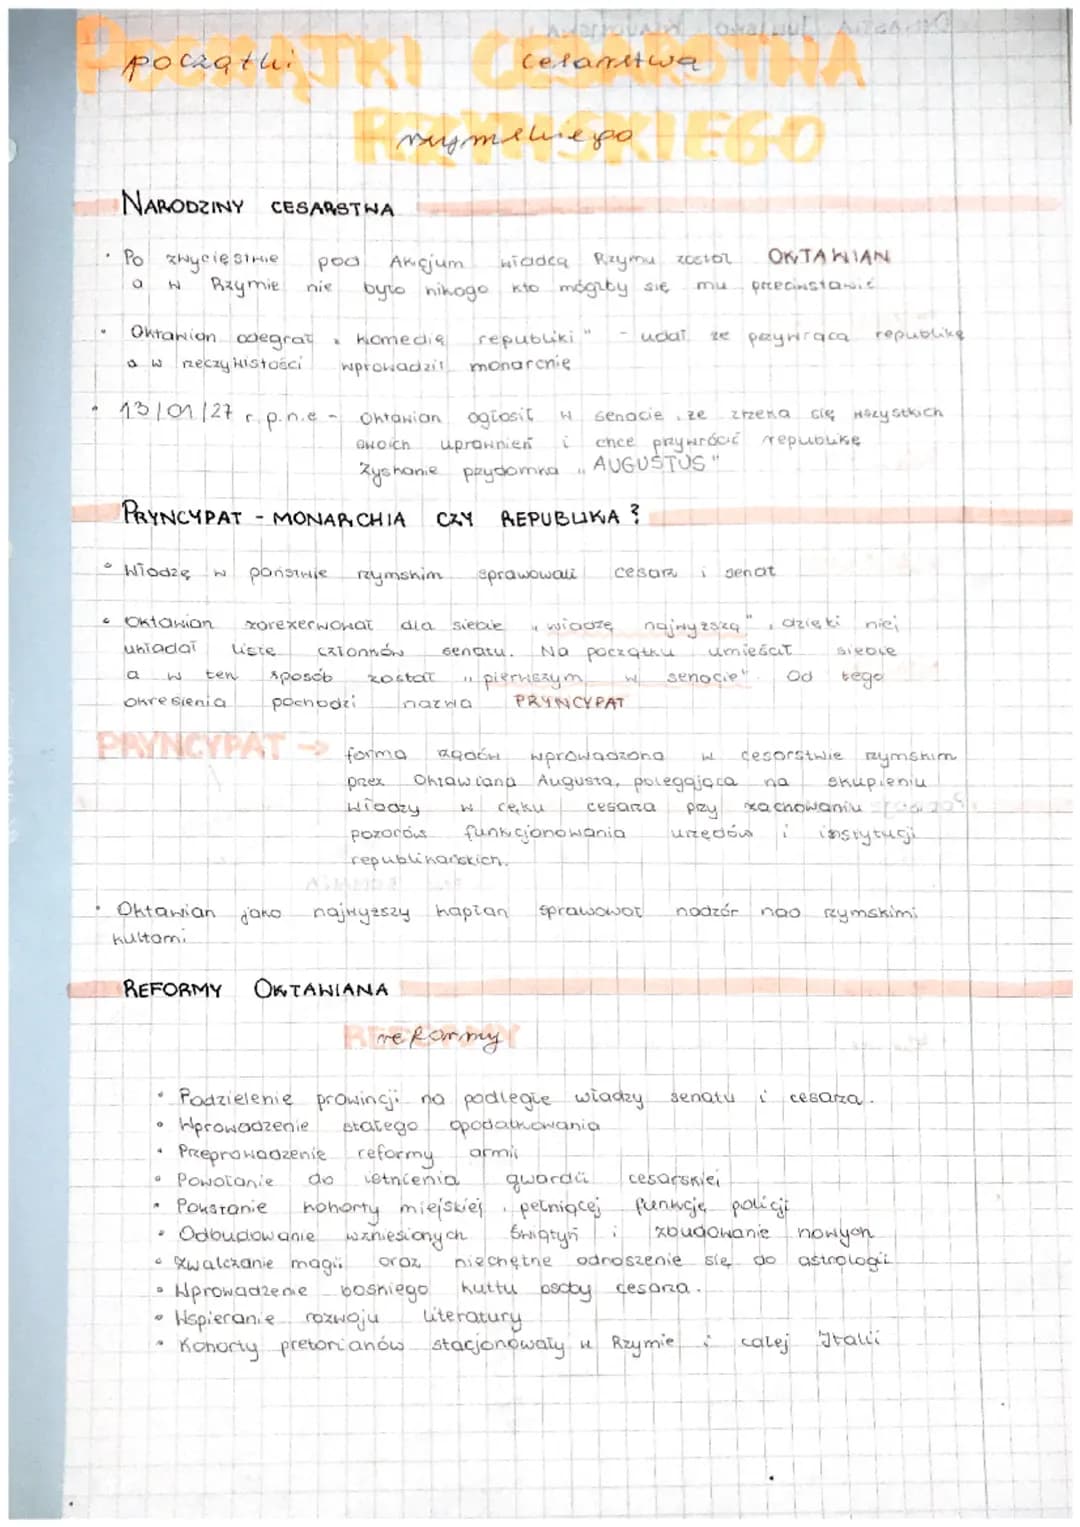 POCZĄTKI CESARSTWA
początki cesarstwa
RZYMSKIEGO
rzymskiego
NARODZINY CESARSTWA
• Po zwycięstwie pod Akcjum władcą Rzymu został OKTAWIAN
a w Rzymie nie było nikogo kto mógłby się mu przeciwstawić
• Oktawian odegrał „komedię republiki" - udał że przywraca republikę
a w rzeczywistości wprowadził monarchię
• 13/01/27 r. p.n.e - Oktawian ogłosił w senacie, że zrzeka się wszystkich
swoich uprawnień i chce przywrócić republikę
Zyskanie przydomka „AUGUSTUS"
PRYNCYPAT - MONARCHIA CZY REPUBLIKA?
• Władzę w państwie rzymskim sprawowali cesarz i senat
• Oktawian zarezerwował dla siebie „władzę najwyższą", dzięki niej
układał listę członków senatu. Na początku umieścił siebie
a w ten sposób został „pierwszym w senacie". Od tego
określenia pochodzi nazwa PRYNCYPAT
PRYNCYPAT → forma rządów wprowadzona w cesarstwie rzymskim
przez Oktawiana Augusta, polegająca na skupieniu
władzy w ręku cesarza przy zachowaniu
pozorów funkcjonowania urzędów i instytucji
republikańskich.
• Oktawian jako najwyższy kapłan sprawował nadzór nad rzymskimi
kultami
REFORMY OKTAWIANA
REFORMY
reformy
• Podzielenie prowincji na podległe władzy senatu i cesarza.
• Wprowadzenie stałego opodatkowania
• Przeprowadzenie reformy armii
• Powołanie do istnienia gwardii cesarskiej
• Powstanie kohorty miejskiej, pełniącej funkcję policji
• Odbudowanie wzniesionych świątyń i zbudowanie nowych
• Zwalczanie magii oraz niechętne odnoszenie się do astrologii
• Wprowadzenie boskiego kultu osoby cesarza.
• Wspieranie rozwoju literatury
• Kohorty pretorianów stacjonowały w Rzymie i całej Italii